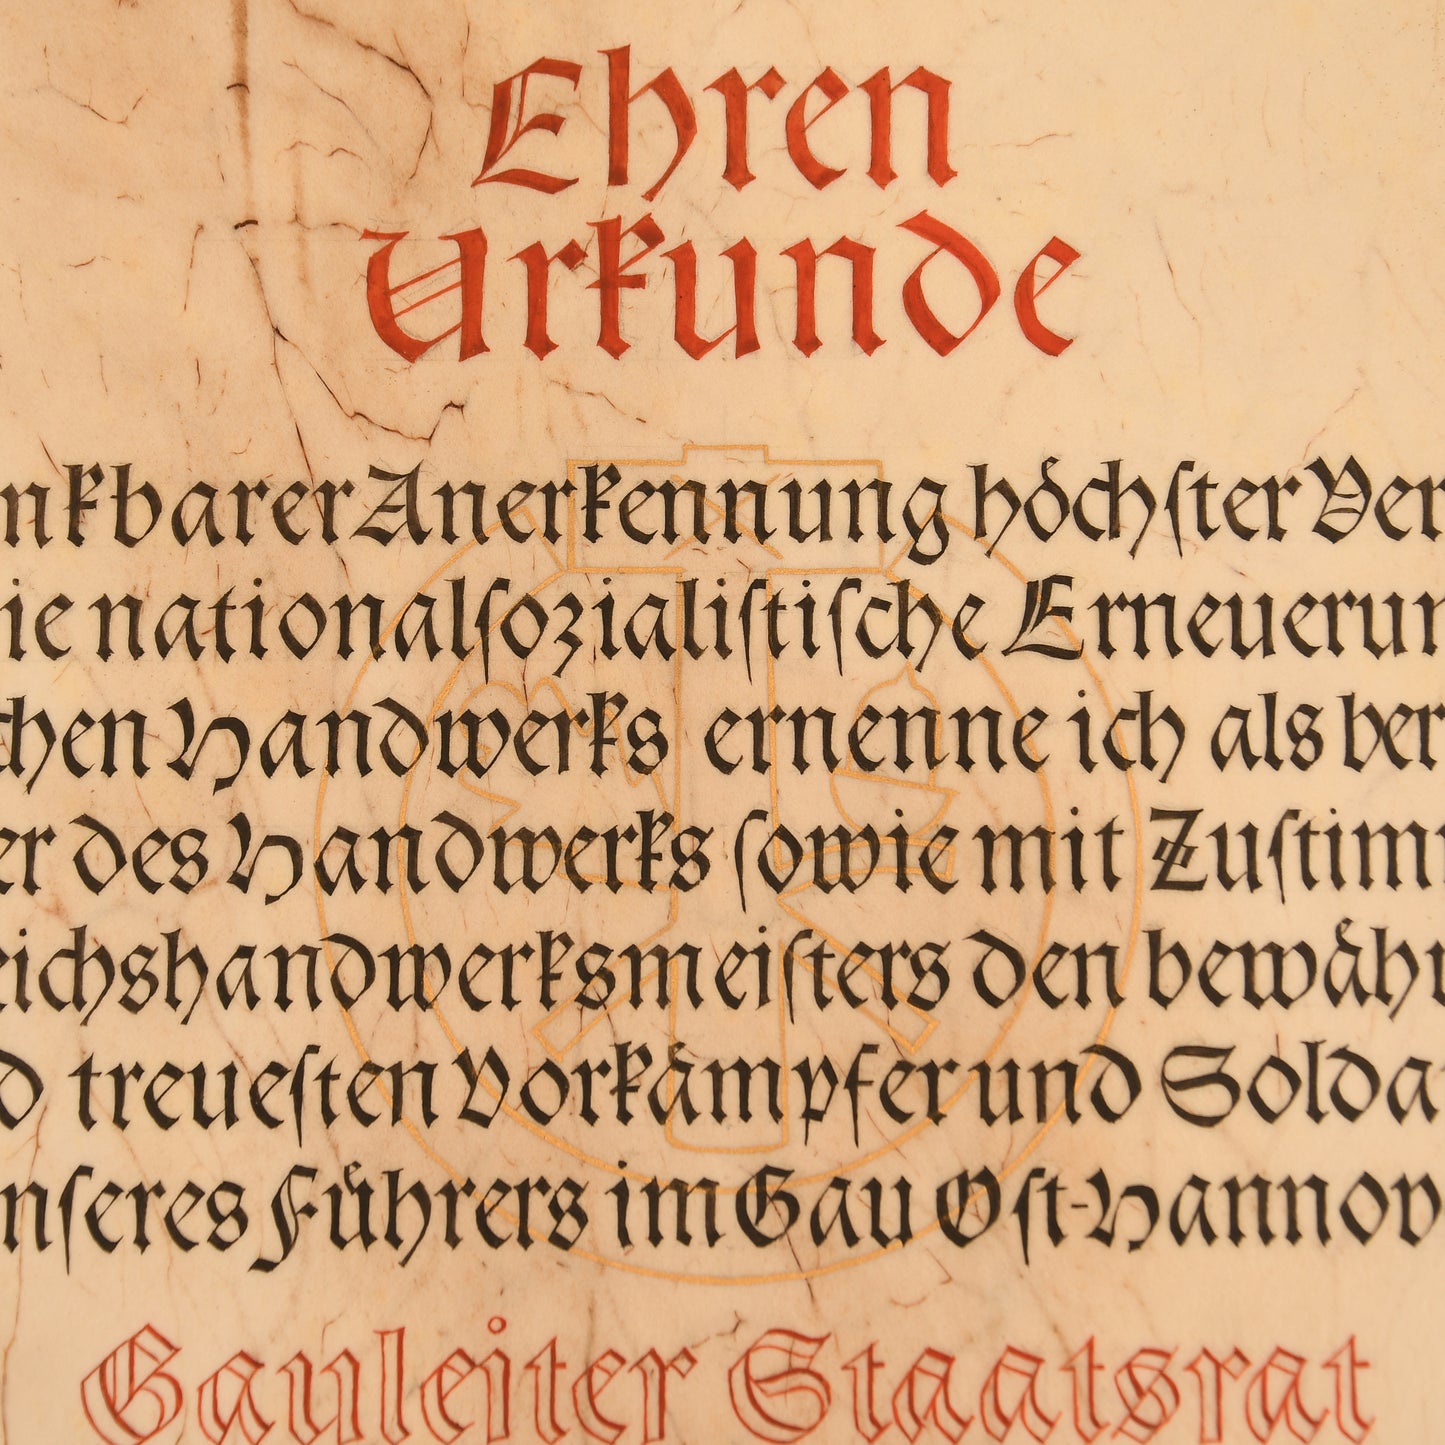 Ehren
Urkunde
nkbarer Anerkennung höchſter Ver
ie nationalſozialiſtiſche Erneuerun
chen Handwerks ernenne ich als ber
er des Handwerks ſowie mit Zuſtimm
eichshandwerksmeiſters den bewähr
d treueſten Vorkämpfer und Solda
nſeres Führers im Gau Oſt-Hannov
Gauleiter Staatsrat